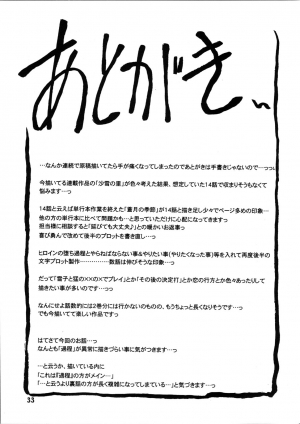 あとがき
…なんか連続で原稿描いてたら手が痛くなってしまったのであとがきは手書きじゃないので…っっ
今描いてる連載作品の「沙雪の里」が色々考えた結果、想定していた14話で収まりそうもなくて
悩みます…っ
14話と云えば単行本作業を終えた「蒼月の季節」が14話と描き足し少々でページ多めの印象…
他の方の単行本に比べて問題かも…と思っていただけに心配になってきますっ
担当様に相談すると「延びても大丈夫♪」との暖かいお返事っ
喜び勇んで改めて後半のプロットを書き直し…
ヒロインの堕ち過程とやらねばならない事&やりたい事(やりたくなった事)等を入れて再度後半の
文字プロット製作………数話は伸びそうな印象…っ
だって「雪子と猛の×××でプレイ」とか「その後の決定打」とか恋の行方とか色々あったりして
描きたい事が多いのです…っっ
なんにせよ話数的には2巻分には行かないものの、もうちょっと長くなりそうです…っ
でも今描いてて楽しい作品ですっ
はてさて今回のお話…っ
なんとも「過程」が異常に描きづらい事に気がつきます…っ
…と云うか、描いている内に
「これは『過程』の方がメイン…」
「…と云うより裏話の方が長く複雑になってしまっている…」と気づきます…っ
33